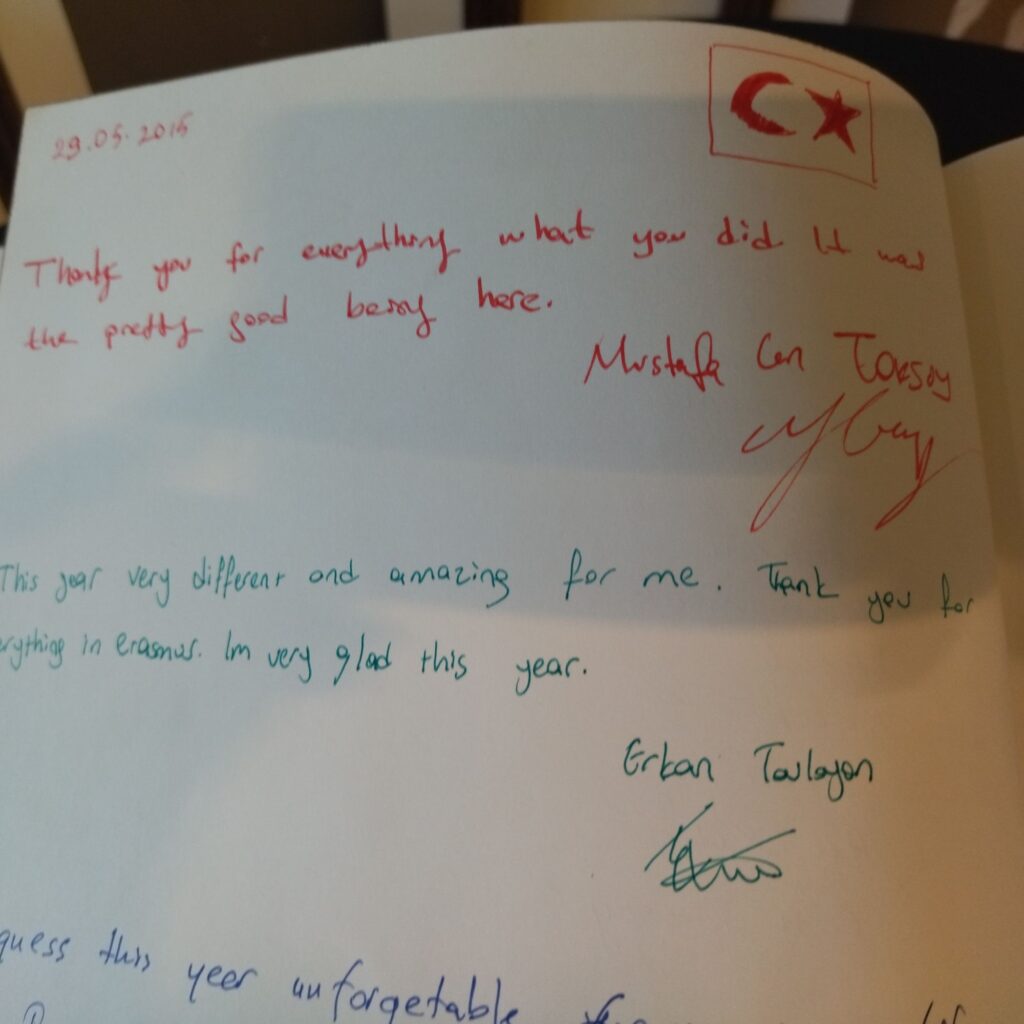 29.05.2015
Thank you for everything what you did It was
the pretty good being here.
Mustafa Can Toksoy
This year very different and amazing for me. Thank you for
erything in erasmus. Im very glad this year.
Erkan Tavlayan
guess this year unforgetable